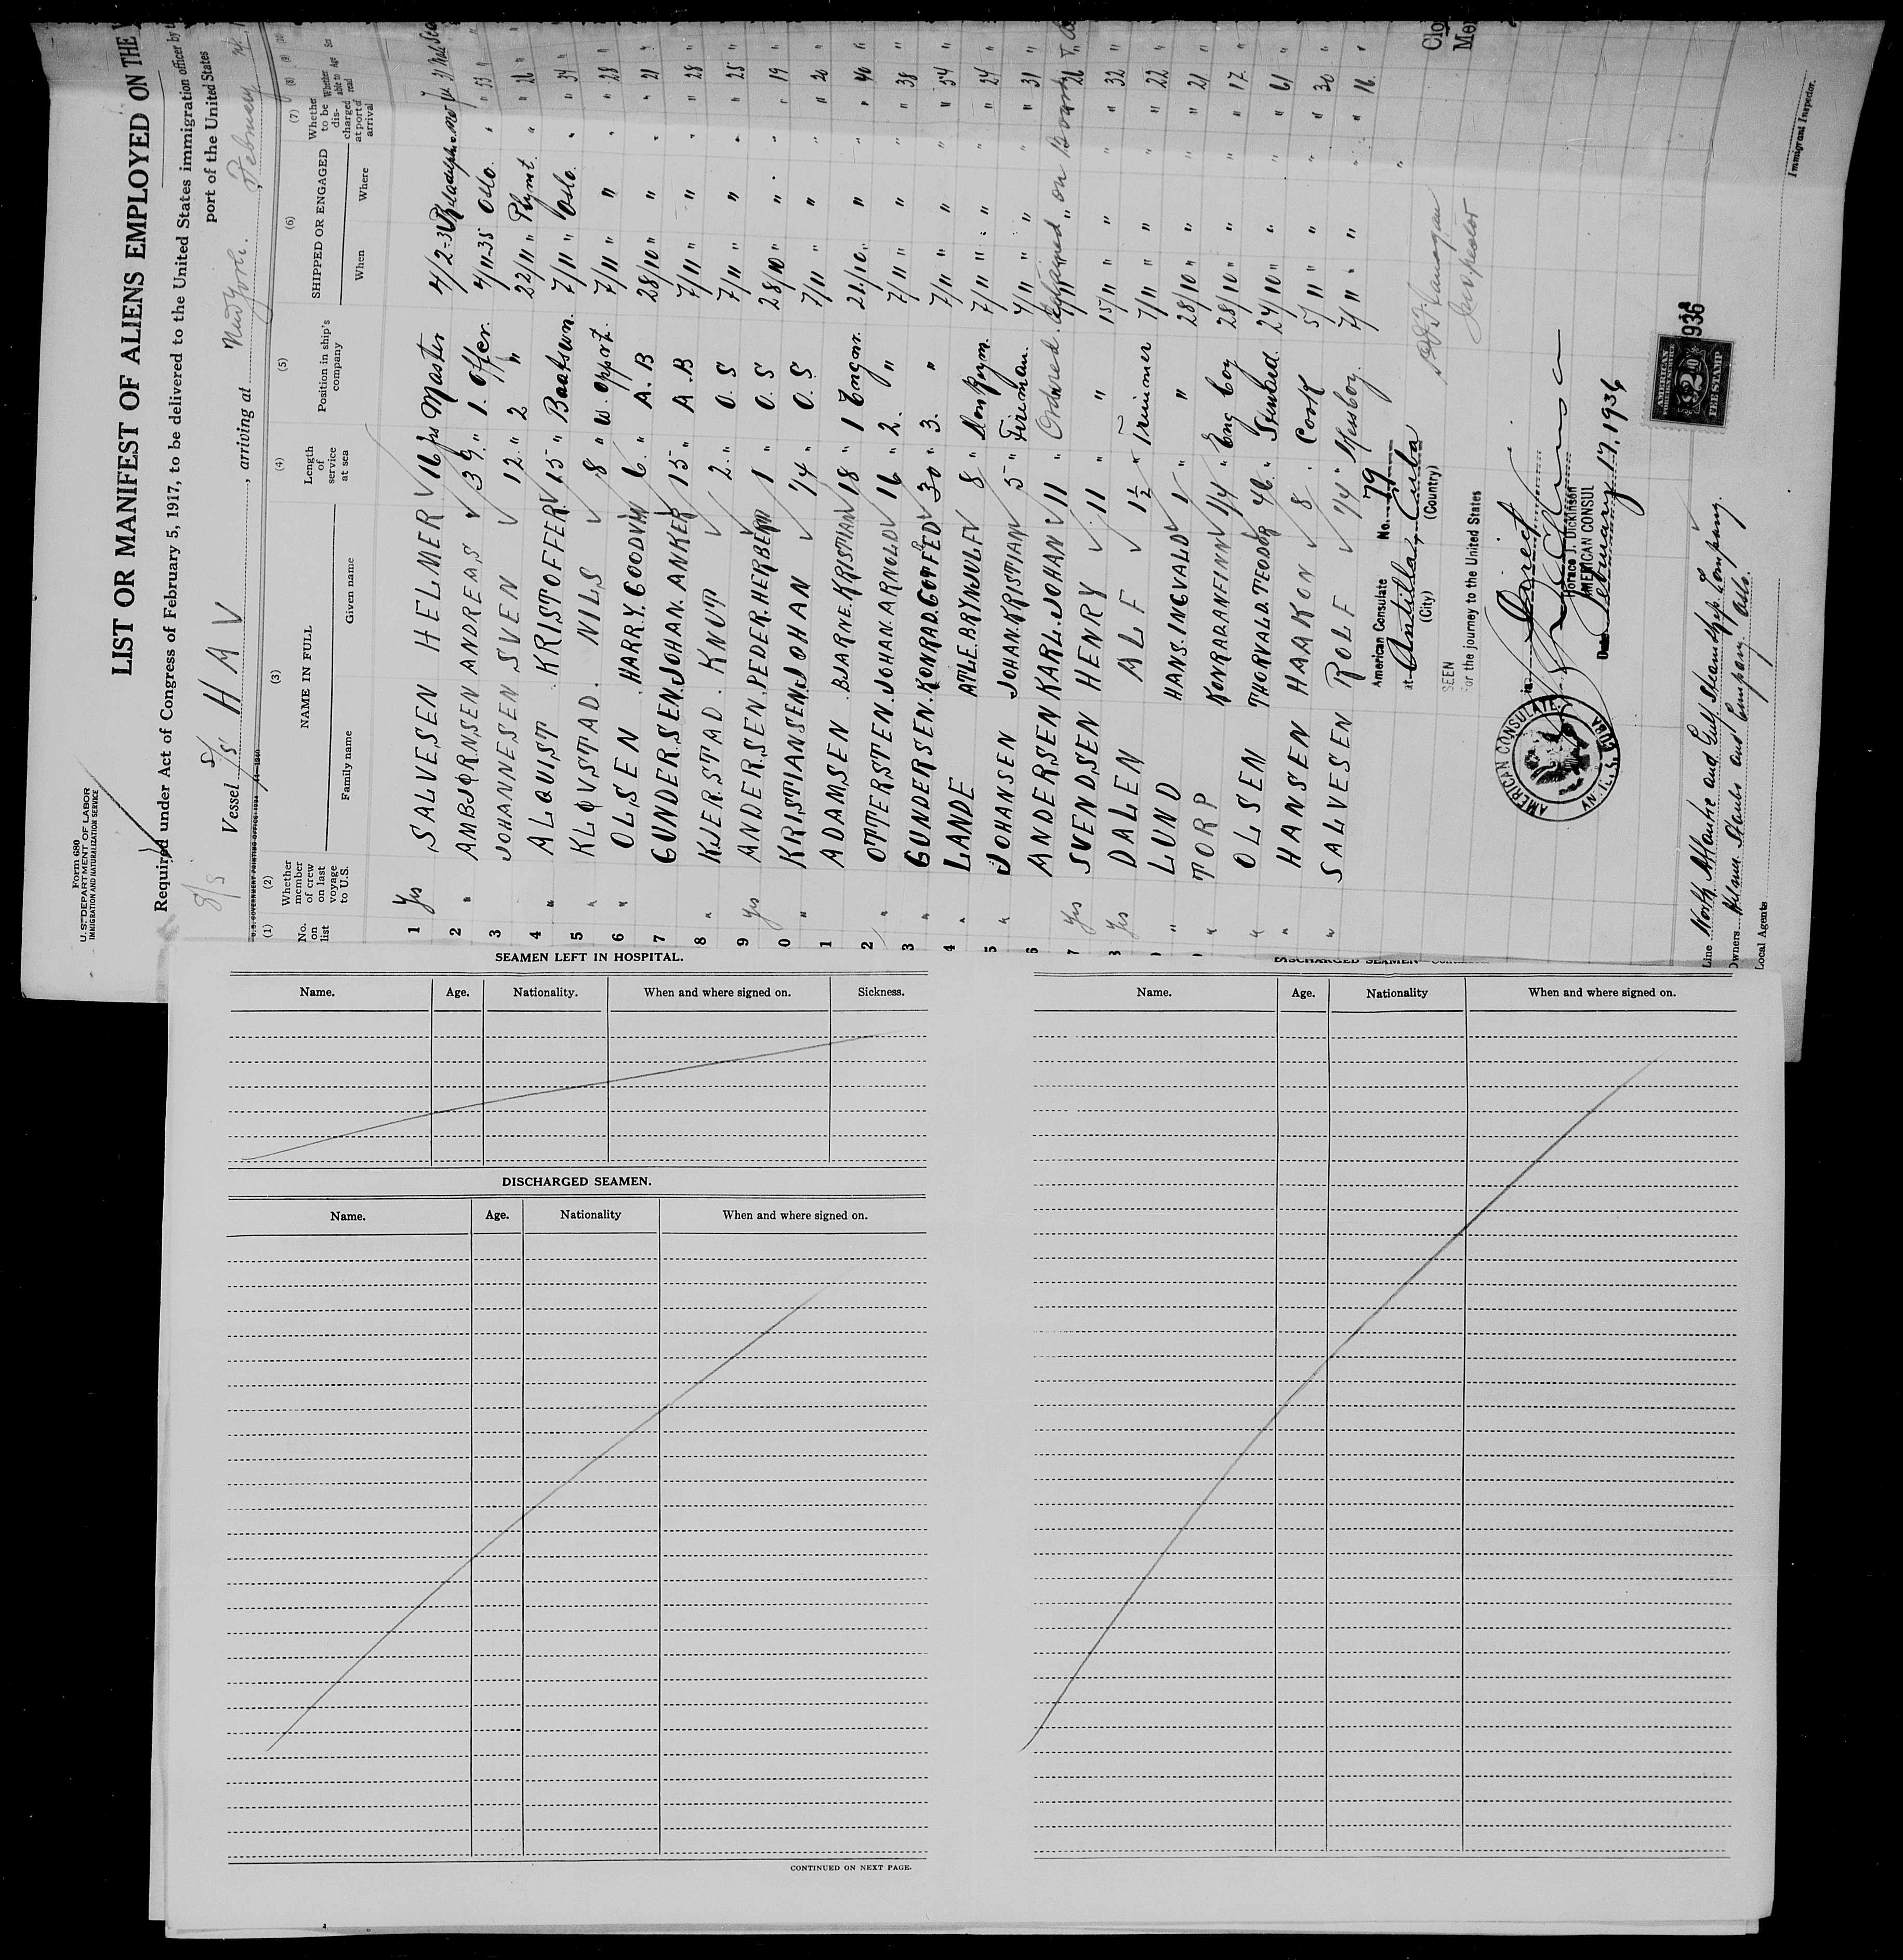 Form 680
U. S. DEPARTMENT OF LABOR
IMMIGRATION AND NATURALIZATION SERVICE
LIST OR MANIFEST OF ALIENS EMPLOYED ON THE
Required under Act of Congress of February 5, 1917, to be delivered to the United States immigration officer by
port of the United States
S/S Vessel S/S HAV, arriving at New York. February
U. S. GOVERNMENT PRINTING OFFICE
(1) (2) (3) (4) (5) (6) (7) (8) (9)
No. on list
Whether member of crew on last voyage to U.S.
NAME IN FULL
Family name Given name
Length of service at sea
Position in ship's company
SHIPPED OR ENGAGED
When Where
Whether to be discharged at port of arrival
Whether able to read
Age
Sex
1 Yes SALVESEN HELMER 16 yrs Master 31
2 " AMBJØRNSEN ANDREAS 39 " 1. Offcr. 7/11-35 Oslo. " " 53 "
3 JOHANNESEN SVEN 12 " 2 " 22/11 " Plymt. " " 26 "
4 " ALQUIST KRISTOFFER 15 " Baatswn. 7/11 " Oslo. " " 34 "
5 " KLØVSTAD. NILS 8 " W. Opprt. 7/11 " " " " 28 "
6 " OLSEN HARRY. GOODVIN 6 " A. B 28/10 " " " " 21 "
7 GUNDERSEN. JOHAN. ANKER 15 " A. B 7/11 " " " " 28 "
8 " KJERSTAD. KNUT 2 " O. S 7/11 " " " " 25 "
9 Yes ANDERSEN. PEDER. HERBERT 1 " O. S 28/10 " " " " 19 "
0 " KRISTIANSEN. JOHAN 1/4 " O. S 7/11 " " " 20 "
1 ADAMSEN BJARNE. KRISTIAN 18 " 1 Engnr. 21/10 " " " " 40 "
2 " OTTERSTEN. JOHAN. ARNOLD 16 " 2. " 7/11 " " " " 38 "
3 " GUNDERSEN. KONRAD. GOTFRED 30 " 3. " 7/11 " " " " 54 "
4 " LANDE ATLE. BRYNJULF 8 " Donkeym. 7/11 " " " " 24 "
5 " JOHANSEN JOHAN. KRISTIAN 5 " Fireman. 7/11 " " " " 31 "
6 ANDERSEN KARL. JOHAN 11 " 26
Ordered on Board
7 Yes SVENDSEN HENRY 11 " " 15/11 " " " " 32 "
8 Yes DALEN ALF 1 1/2 " Trimmer 7/11 " " " " 22 "
" LUND HANS. INGVALD 1 " " 28/10 " " " " 21 "
" TORP KONRAD. ANFINN 1/4 " Eng boy 28/10 " " " " 17 "
" OLSEN THORVALD. TEODOR 46 " Steward. 24/10 " " " " 61 "
" HANSEN HAAKON 8 " Cook 5/11 " " " " 30 "
" SALVESEN ROLF 1/4 " Messboy. 7/11 " " " " 16 "
American Consulate No. 79
at Antilla, Cuba
(City) (Country)
SEEN
For the journey to the United States
Inspector
Horace J. Dickinson
AMERICAN CONSUL
Date February 17. 1936
AMERICAN CONSULATE
ANTILLA, CUBA
AMERICAN
FOREIGN SERVICE
$2.00
FEE STAMP
1936
Line North Atlantic and Gulf Steamship Company
Owners
Local Agents
Immigrant Inspector.
SEAMEN LEFT IN HOSPITAL.
Name. Age. Nationality. When and where signed on. Sickness.
DISCHARGED SEAMEN.
Name. Age. Nationality When and where signed on.
CONTINUED ON NEXT PAGE.
DISCHARGED SEAMEN
Name. Age. Nationality When and where signed on.